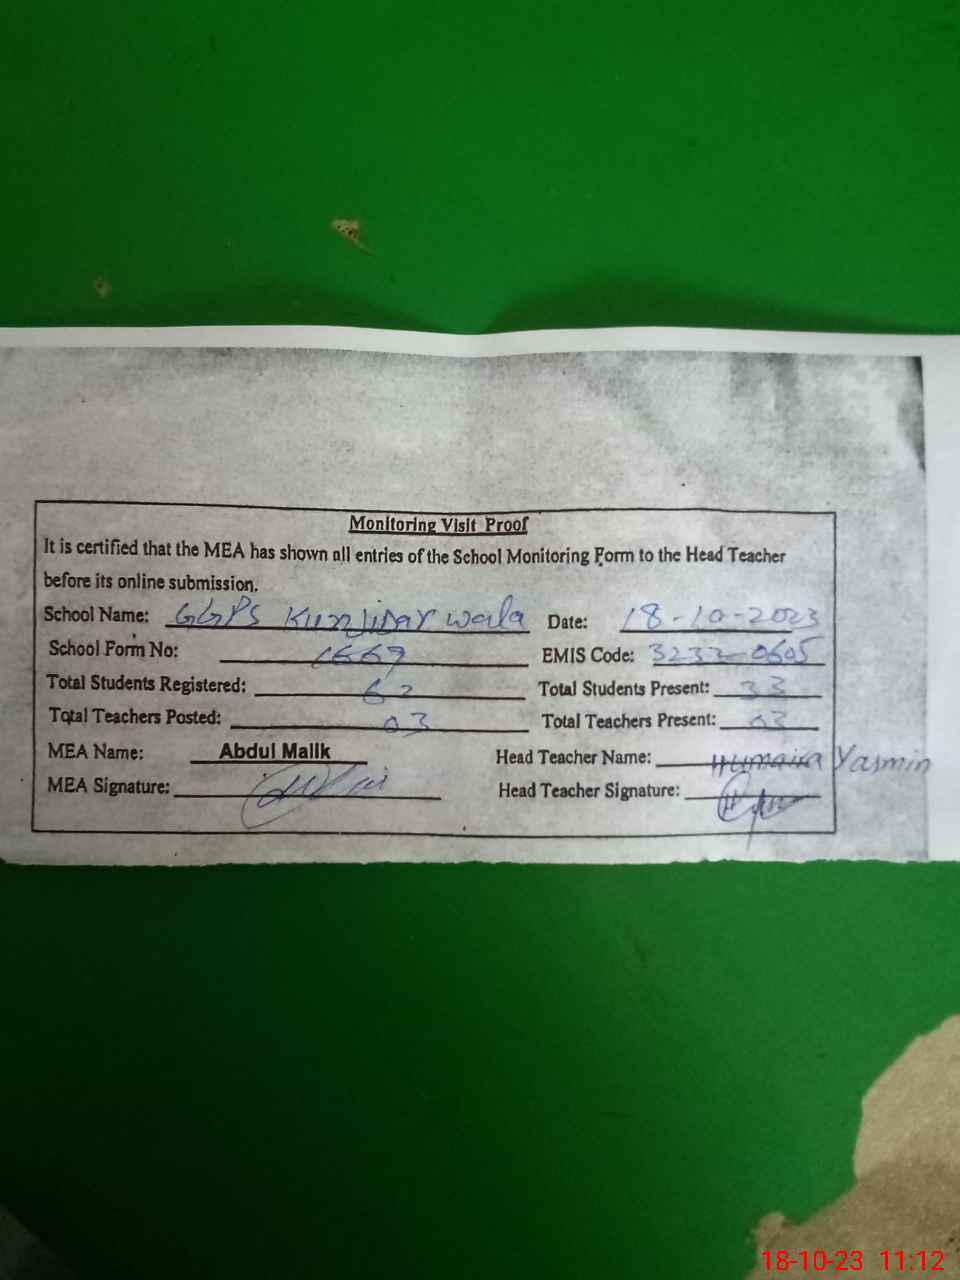 Monitoring Visit Proof
It is certified that the MEA has shown all entries of the School Monitoring Form to the Head Teacher
before its online submission.
School Name: GGPS wala Date: 18-10-2023
School Form No: 1669 EMIS Code: 3233-0605
Total Students Registered: 62 Total Students Present: 33
Total Teachers Posted: 03 Total Teachers Present: 03
MEA Name: Abdul Malik Head Teacher Name: Humaira Yasmin
MEA Signature: Head Teacher Signature:
18-10-23 11:12